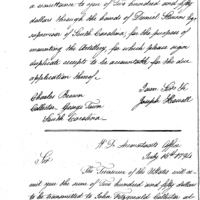 a remittance to you of two hundred and fifty
dollars through the hands of Daniel Stevens Esq
supervisor of South Carolina, for the purpose of
mounting the Artillery, for which please sign
duplicate receipt to be accountable for the due
application thereof
Charles Brown
Collector George Town
South Carolina
Joseph Howell
W. D. Accountants Office
July 16th 1794
Sir
The Treasurer of the United States will
remit you the sum of two hundred and fifty dollars
to be transmitted to John Fitzgerald Collector